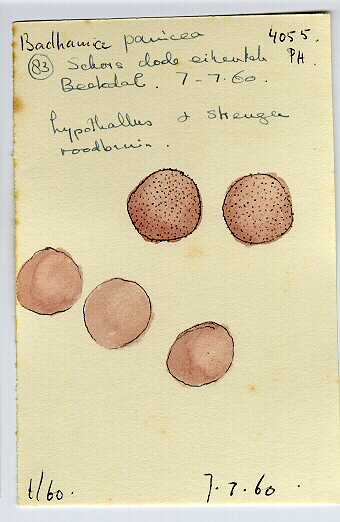 Badhamia panicea 4055.
(83) Schors dode eikentak PH.
Beekdal. 7-7.60.
hypothallus & strengen
roodbruin.
1/60. 7.7.60.